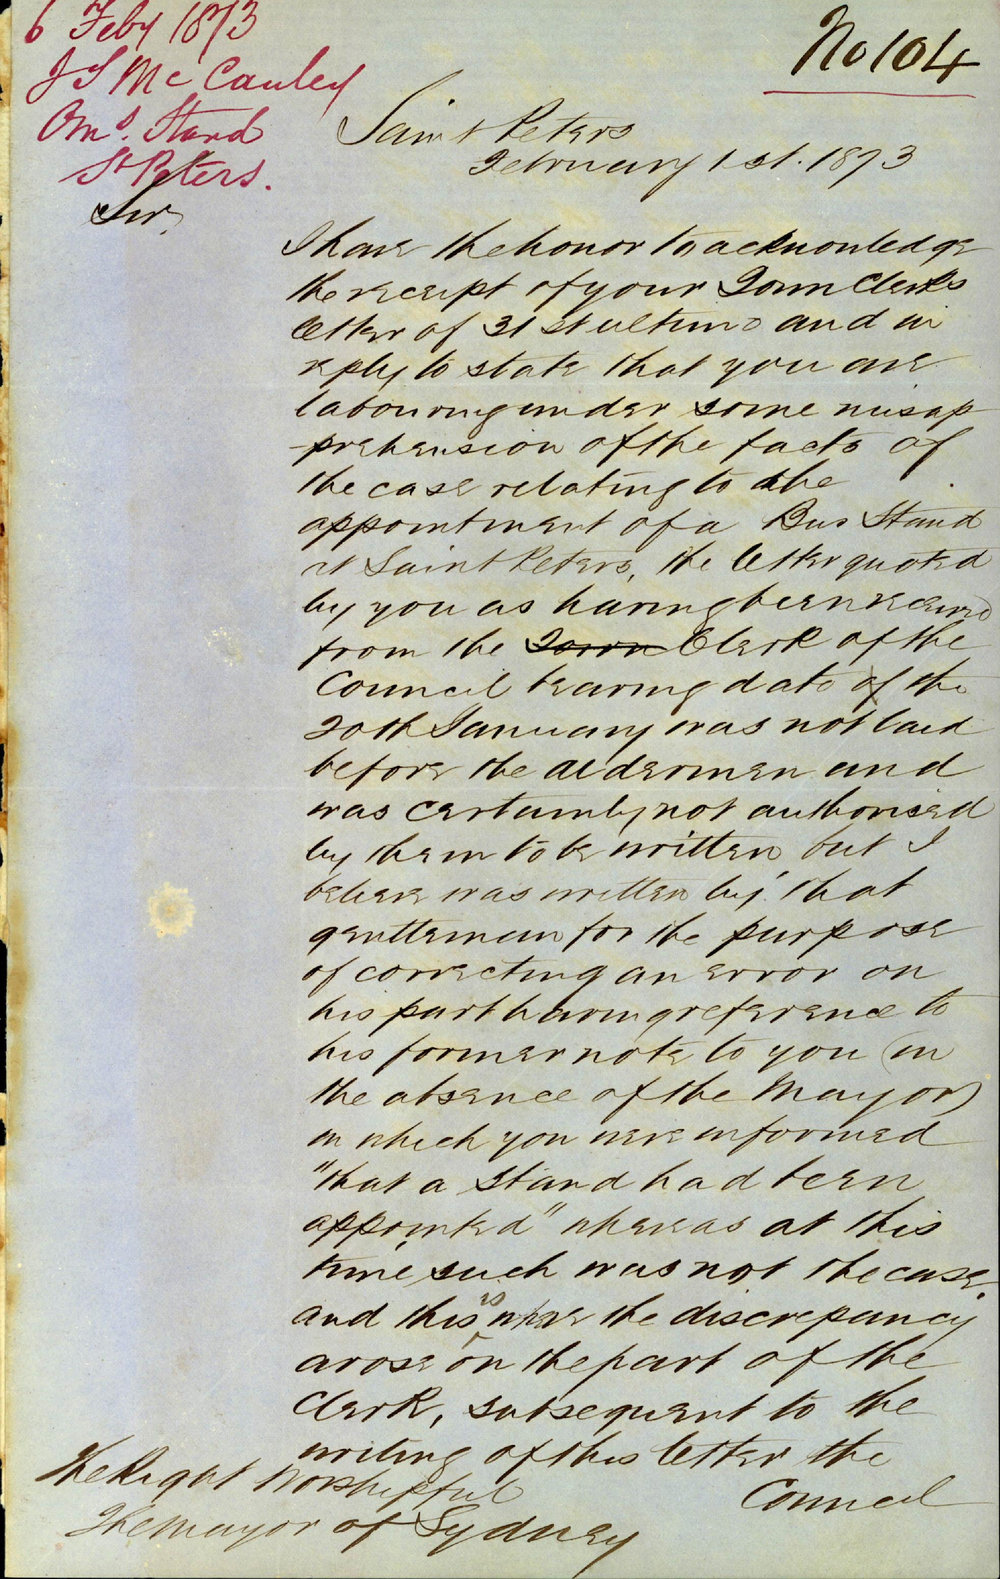 6 Feby 1873
J S McCauley
Oms. Stand
St Peters.
No 104
Saint Peters
February 1st. 1873
Sir,
I have the honor to acknowledge
the receipt of your Town Clerks
letter of 31st ultimo and in
reply to state that you are
labouring under some misap
-prehension of the facts of
the case relating to the
appointment of a Bus Stand
at Saint Peters, the letter quoted
by you as having been received
from the Town Clerk of the
Council bearing date of the
20th January was not laid
before the aldermen and
was certainly not authorised
by them to be written but I
believe was written by that
gentleman for the purpose
of correcting an error on
his part having reference to
his former note to you (in
the absence of the Mayor)
in which you were informed
"that a stand had been
appointed" whereas at this
time, such was not the case
and this is where the discrepancy
arose on the part of the
Clerk, subsequent to the
writing of this letter the
Council
The Right Worshipful
The Mayor of Sydney